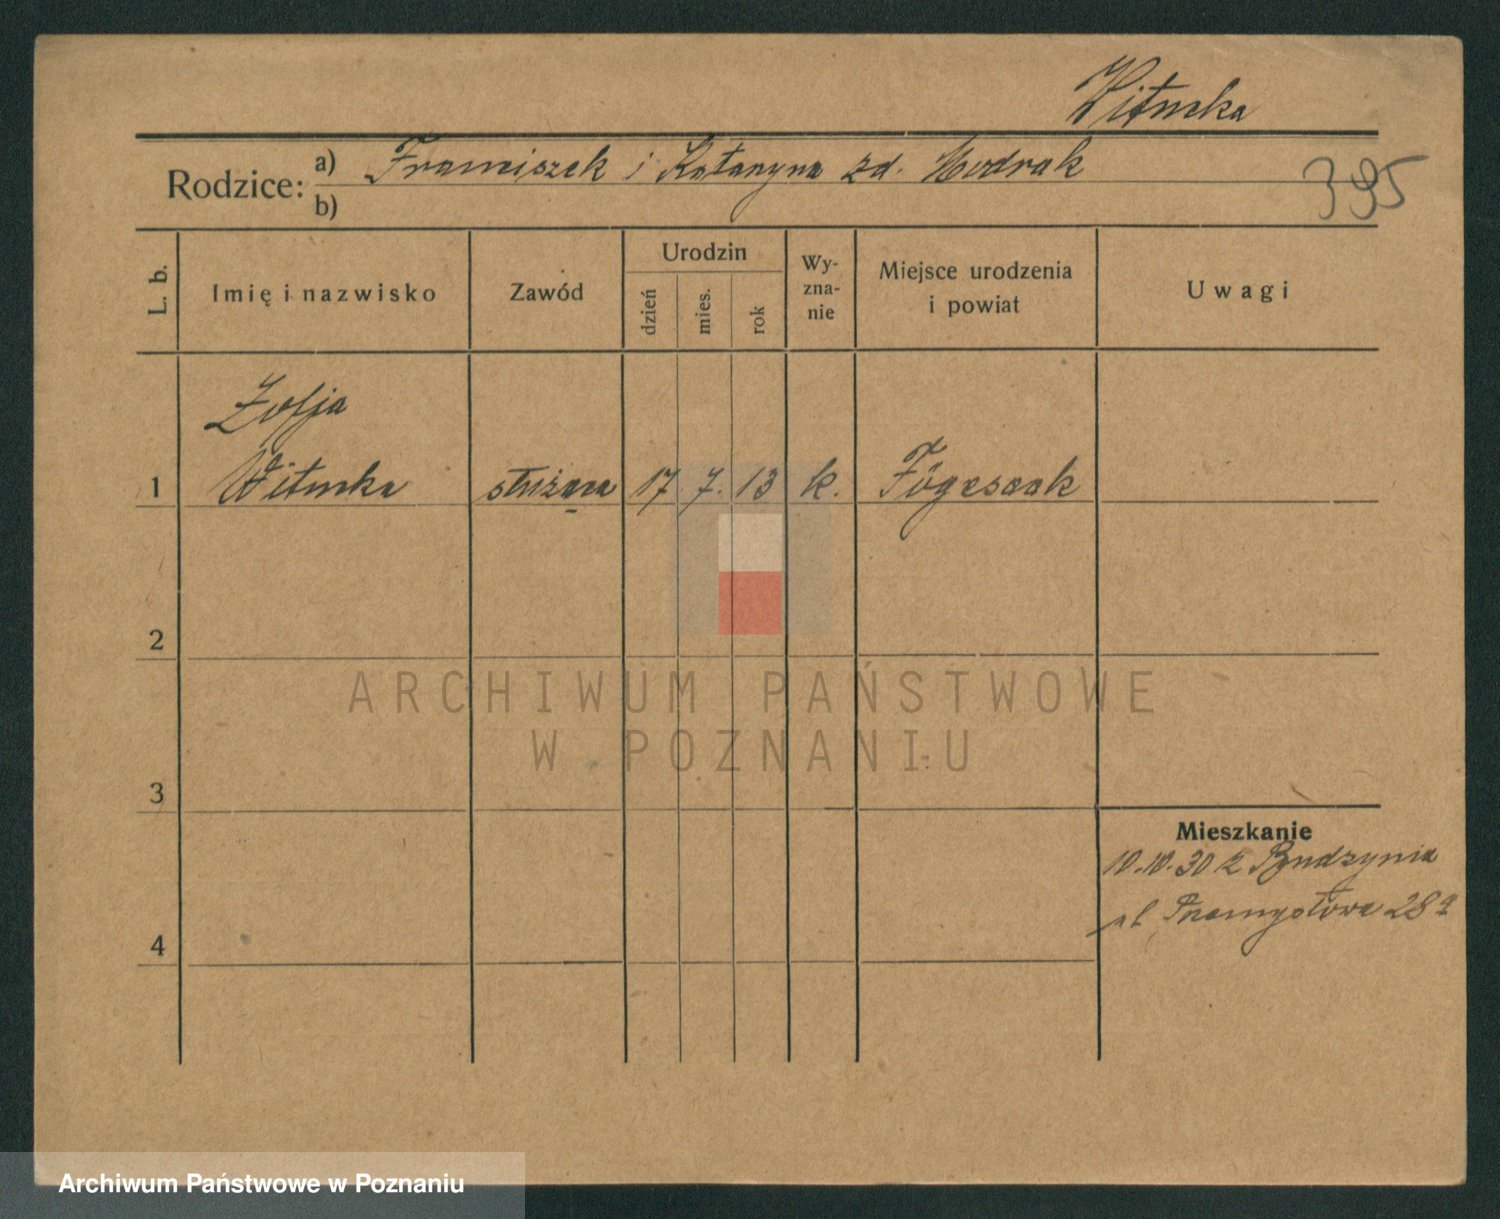 Witucka
Rodzice: a) Franciszek i Katarzyna zd. Modrak
b)
395
L. b.
Imię i nazwisko
Zawód
Urodzin
dzień
mies.
rok
Wy-
zna-
nie
Miejsce urodzenia
i powiat
Uwagi
Zofja
1 Witucka służąca 17 7. 13 k.
2
ARCHIWUM PAŃSTWOWE
W POZNANIU
3
Mieszkanie
10.10.30 z Budzynia
ul Przemysłowa 28a
4
Archiwum Państwowe w Poznaniu